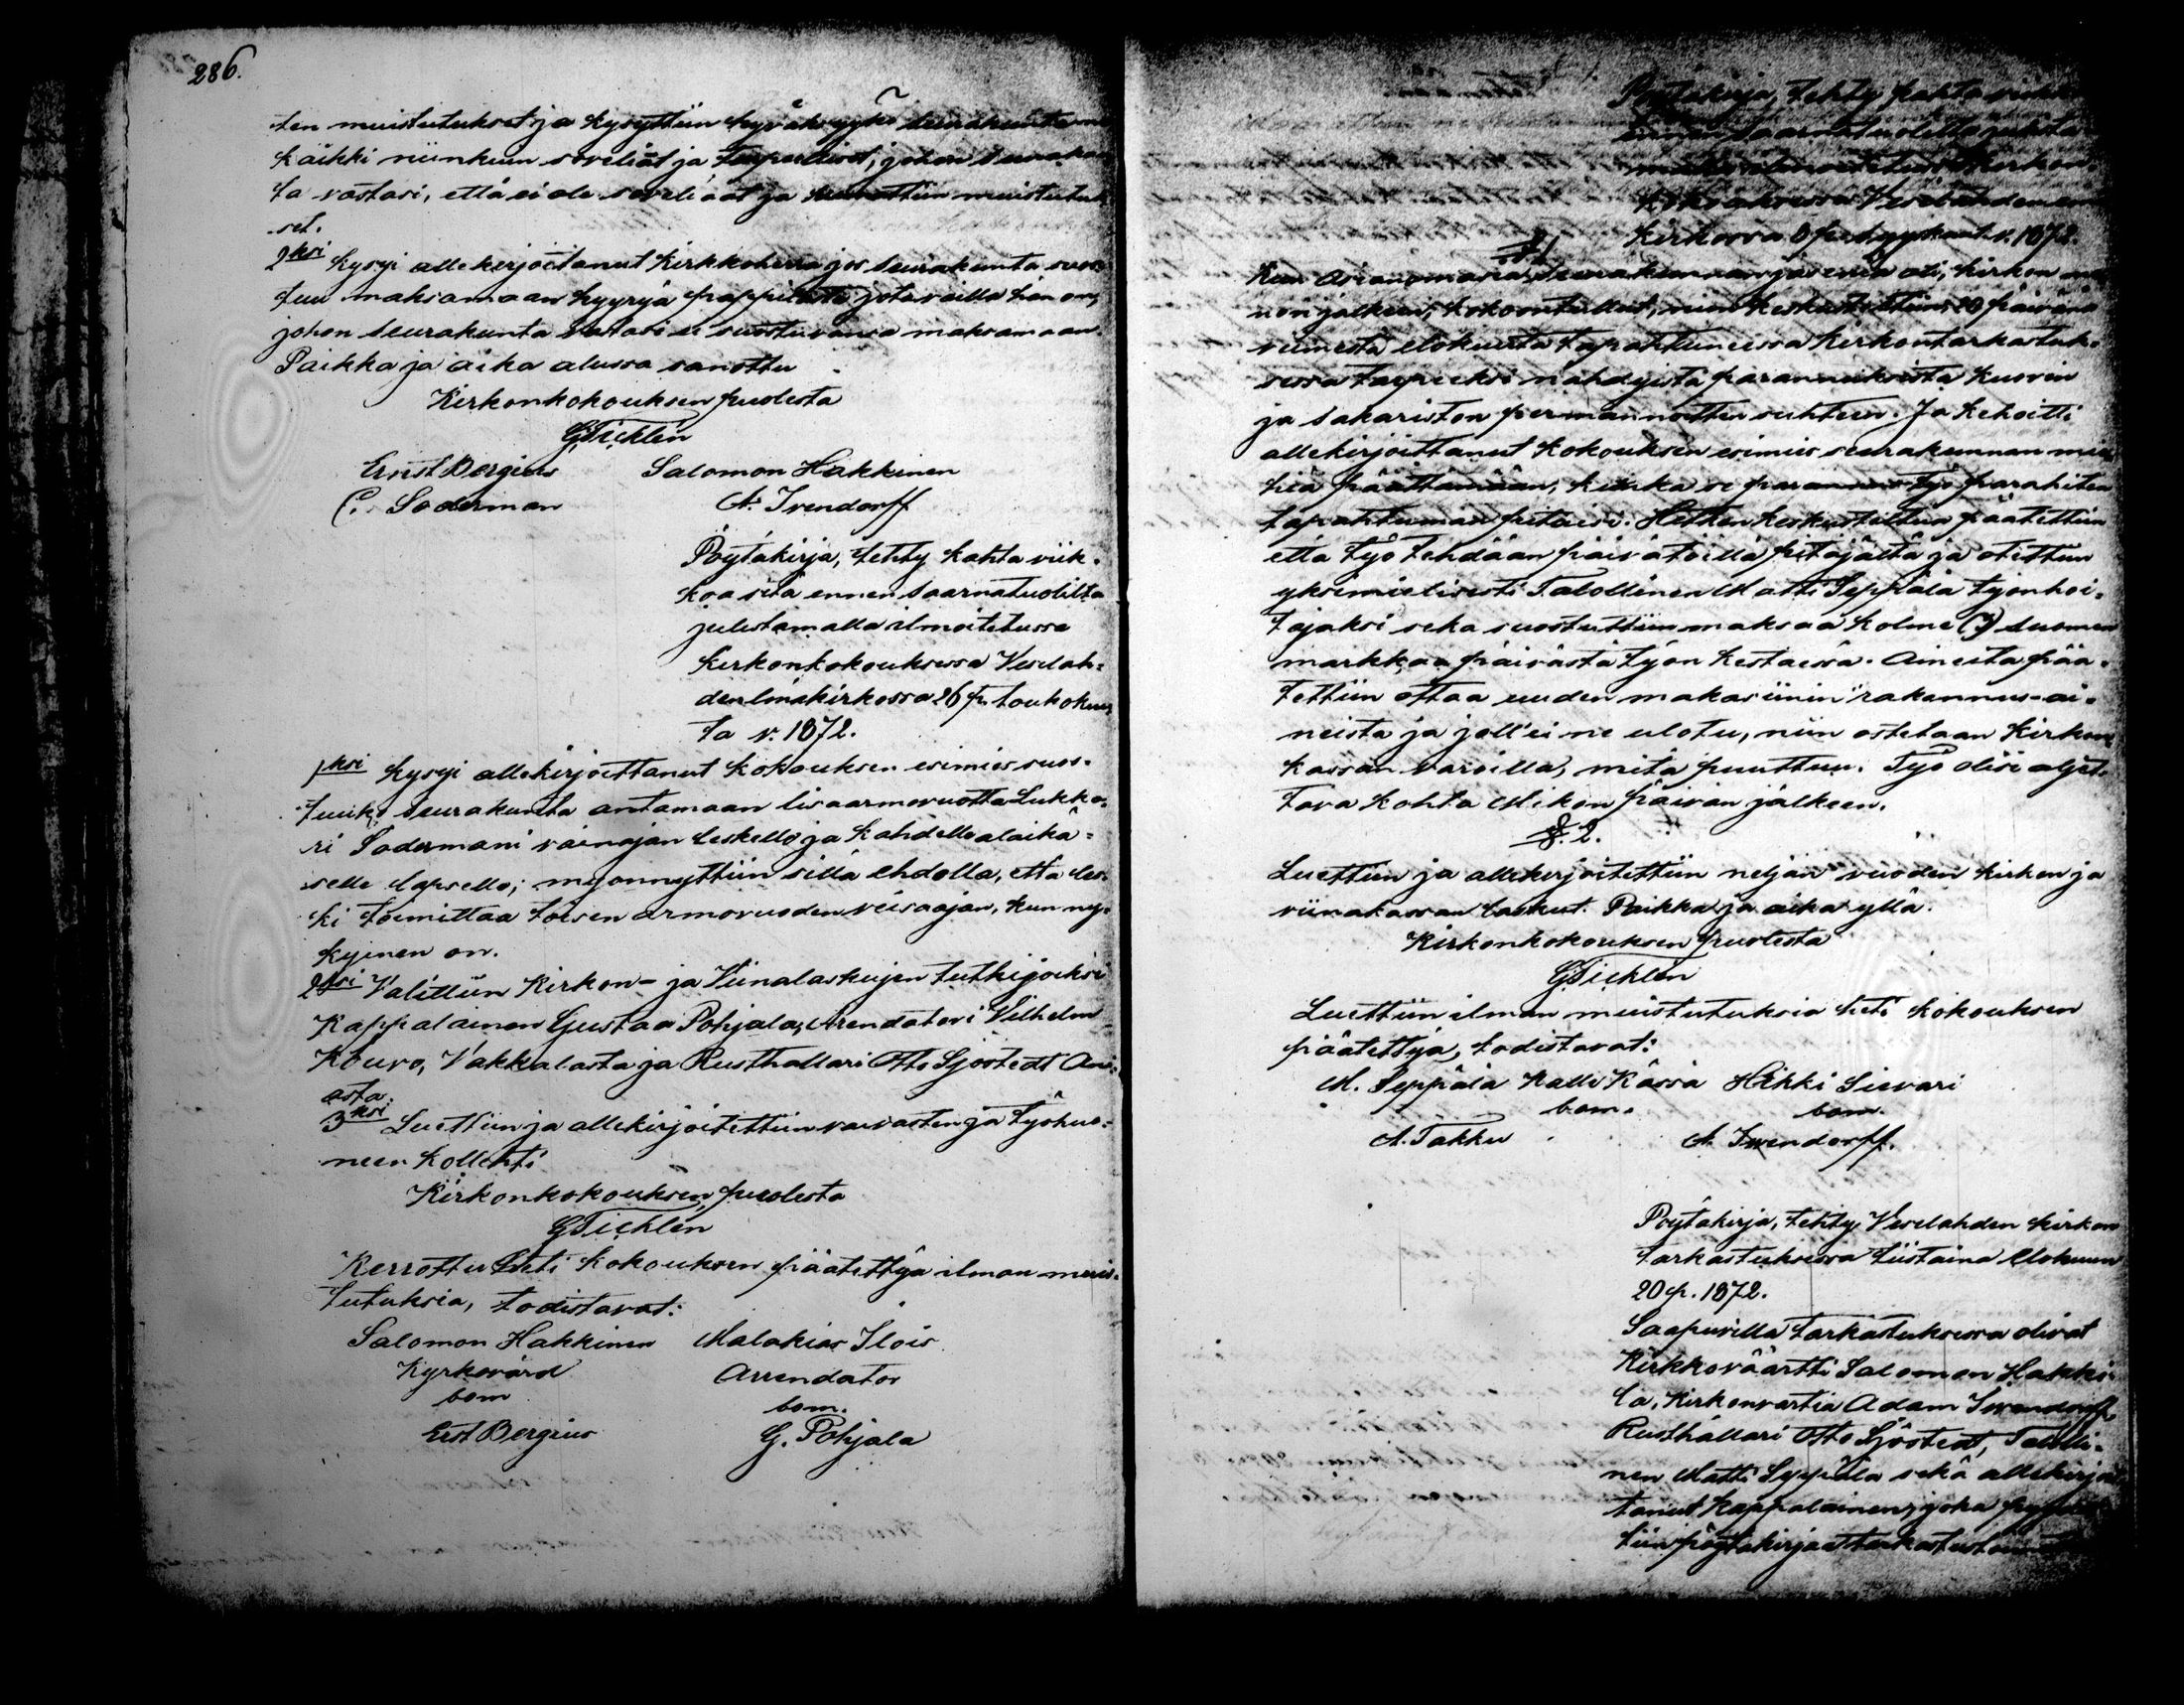 286.
ten muistutukset ja kysyttiin hyväksyykö seurakunta ne
kaikki niinkuin soveliat ja tarpeelliset, johon seurakun
ta vastasi, että ei ole soveliaat ja kumottiin muistutuk
set.
2ksi Kysyi allekirjoittanut Kirkkoherra jos seurakunta suos
tuu maksamaan hyyryä pappilasta jota vailla hän on,
johon seurakunta vastasi ei suostuvansa maksamaan.
Paikka ja aika alussa sanottu
Kirkonkokouksen puolesta
G Tichlén
Ernst Bergius Salomon Hakkinen
C. Soderman A. Ivendorff
Pöytäkirja, tehty kahta viik-
koa sitä ennen saarnatuolilta
julistamalla ilmoitetussa
Kirkonkokouksessa Vesilah-
den Emäkirkossa 26 p. toukokuu
ta v. 1872.
1ksi Kysyi allekirjoittanut Kokouksen esimies suos-
tuuko seurakunta antamaan lisäarmovuotta Lukka-
ri Södermani vainajan leskelle ja kahdelle alaikä-
selle lapselle; myönnyttiin sillä ehdolla, että les-
ki toimittaa toisen armovuoden veisaajan, kun ny-
kyinen on.
2ksi Valittiin Kirkon- ja Viinalaskujen tutkijoiksi
Kappalainen Gustaa Pohjala, Arendatori Vilhelm
Kouvo, Vakkalasta ja Rusthallari Otto Sjöstedt Ani-
asta.
3ksi Luettiin ja allekirjoitettiin vaivasten ja työhuo-
neen Kollehti
Kirkonkokouksen puolesta
G Tichlén
Kerrottu heti Kokouksen päätettyä ilman muis-
tutuksia, todistavat:
Salomon Hakkinen Malakias Ilois
Kyrkovärd Arrendator
bom bom.
Ernst Bergius G. Pohjala
Pöytäkirja, tehty kahta viikk
ennen saarnatuolilta julista
malla ilmoitetussa Kirkon
Kokouksessa Vesilahden em
Kirkossa 8 p. syyskuut. v. 1872.
§ 1
Kun asianomaisia seurakunnan jäseniä oli, kirkon me
non jälkeen, kokoontullut, niin keskusteltiin 20 päivänä
viimestä elokuuta tapahtuneessa Kirkontarkastuk-
sessa tarpeeksi nähdyistä parannuksista Kuorin
ja Sakariston permannoitten suhteen. Ja kehoitti
allekirjoittanut Kokouksen esimies seurakunnan mie
hiä päättämään, kuinka se parannus työ parahiten
tapahtuman pitäisi. Hetken keskusteltua päätettiin
että työ tehdään päivätöillä pitäjältä ja otettiin
yksimielisesti Talollinen Matti Seppälä työnhoi-
tajaksi sekä suostuttiin maksaa kolme (3) Suomen
markkaa päivästä työn kestäessä. Aineita pää-
tettiin ottaa uuden makasiinin rakennus-ai-
neista ja joll'ei ne ulotu, niin ostetaan Kirkon
kassan varoilla, mitä puuttuu. Työ olisi aljet-
tava kohta Mikon päivän jälkeen.
§. 2.
Luettiin ja allekirjoitettiin neljän vuoden kirkon ja
viinakassan laskut. Paikka ja aika yllä.
Kirkonkokouksen puolesta
G Tichlén
Luettiin ilman muistutuksia heti Kokouksen
päätettyä, todistavat:
M. Seppälä Kalle Kässä Heikki Sievari
bom. bom.
A. Takku A. Ivendorff.
Pöytäkirja, tehty Vesilahden Kirkon
tarkastuksessa tiistaina Elokuun
20 p. 1872.
Saapuvilla tarkastuksessa olivat
Kirkkoväärtti Salomon Hakki-
la, Kirkonvartia Adam Ivendorff,
Rusthallari Otto Sjöstedt, Talolli-
nen Matti Seppälä sekä allekirjoit
tanut Kappalainen, joka
tiin pöytäkirjaa tarkastustoimi